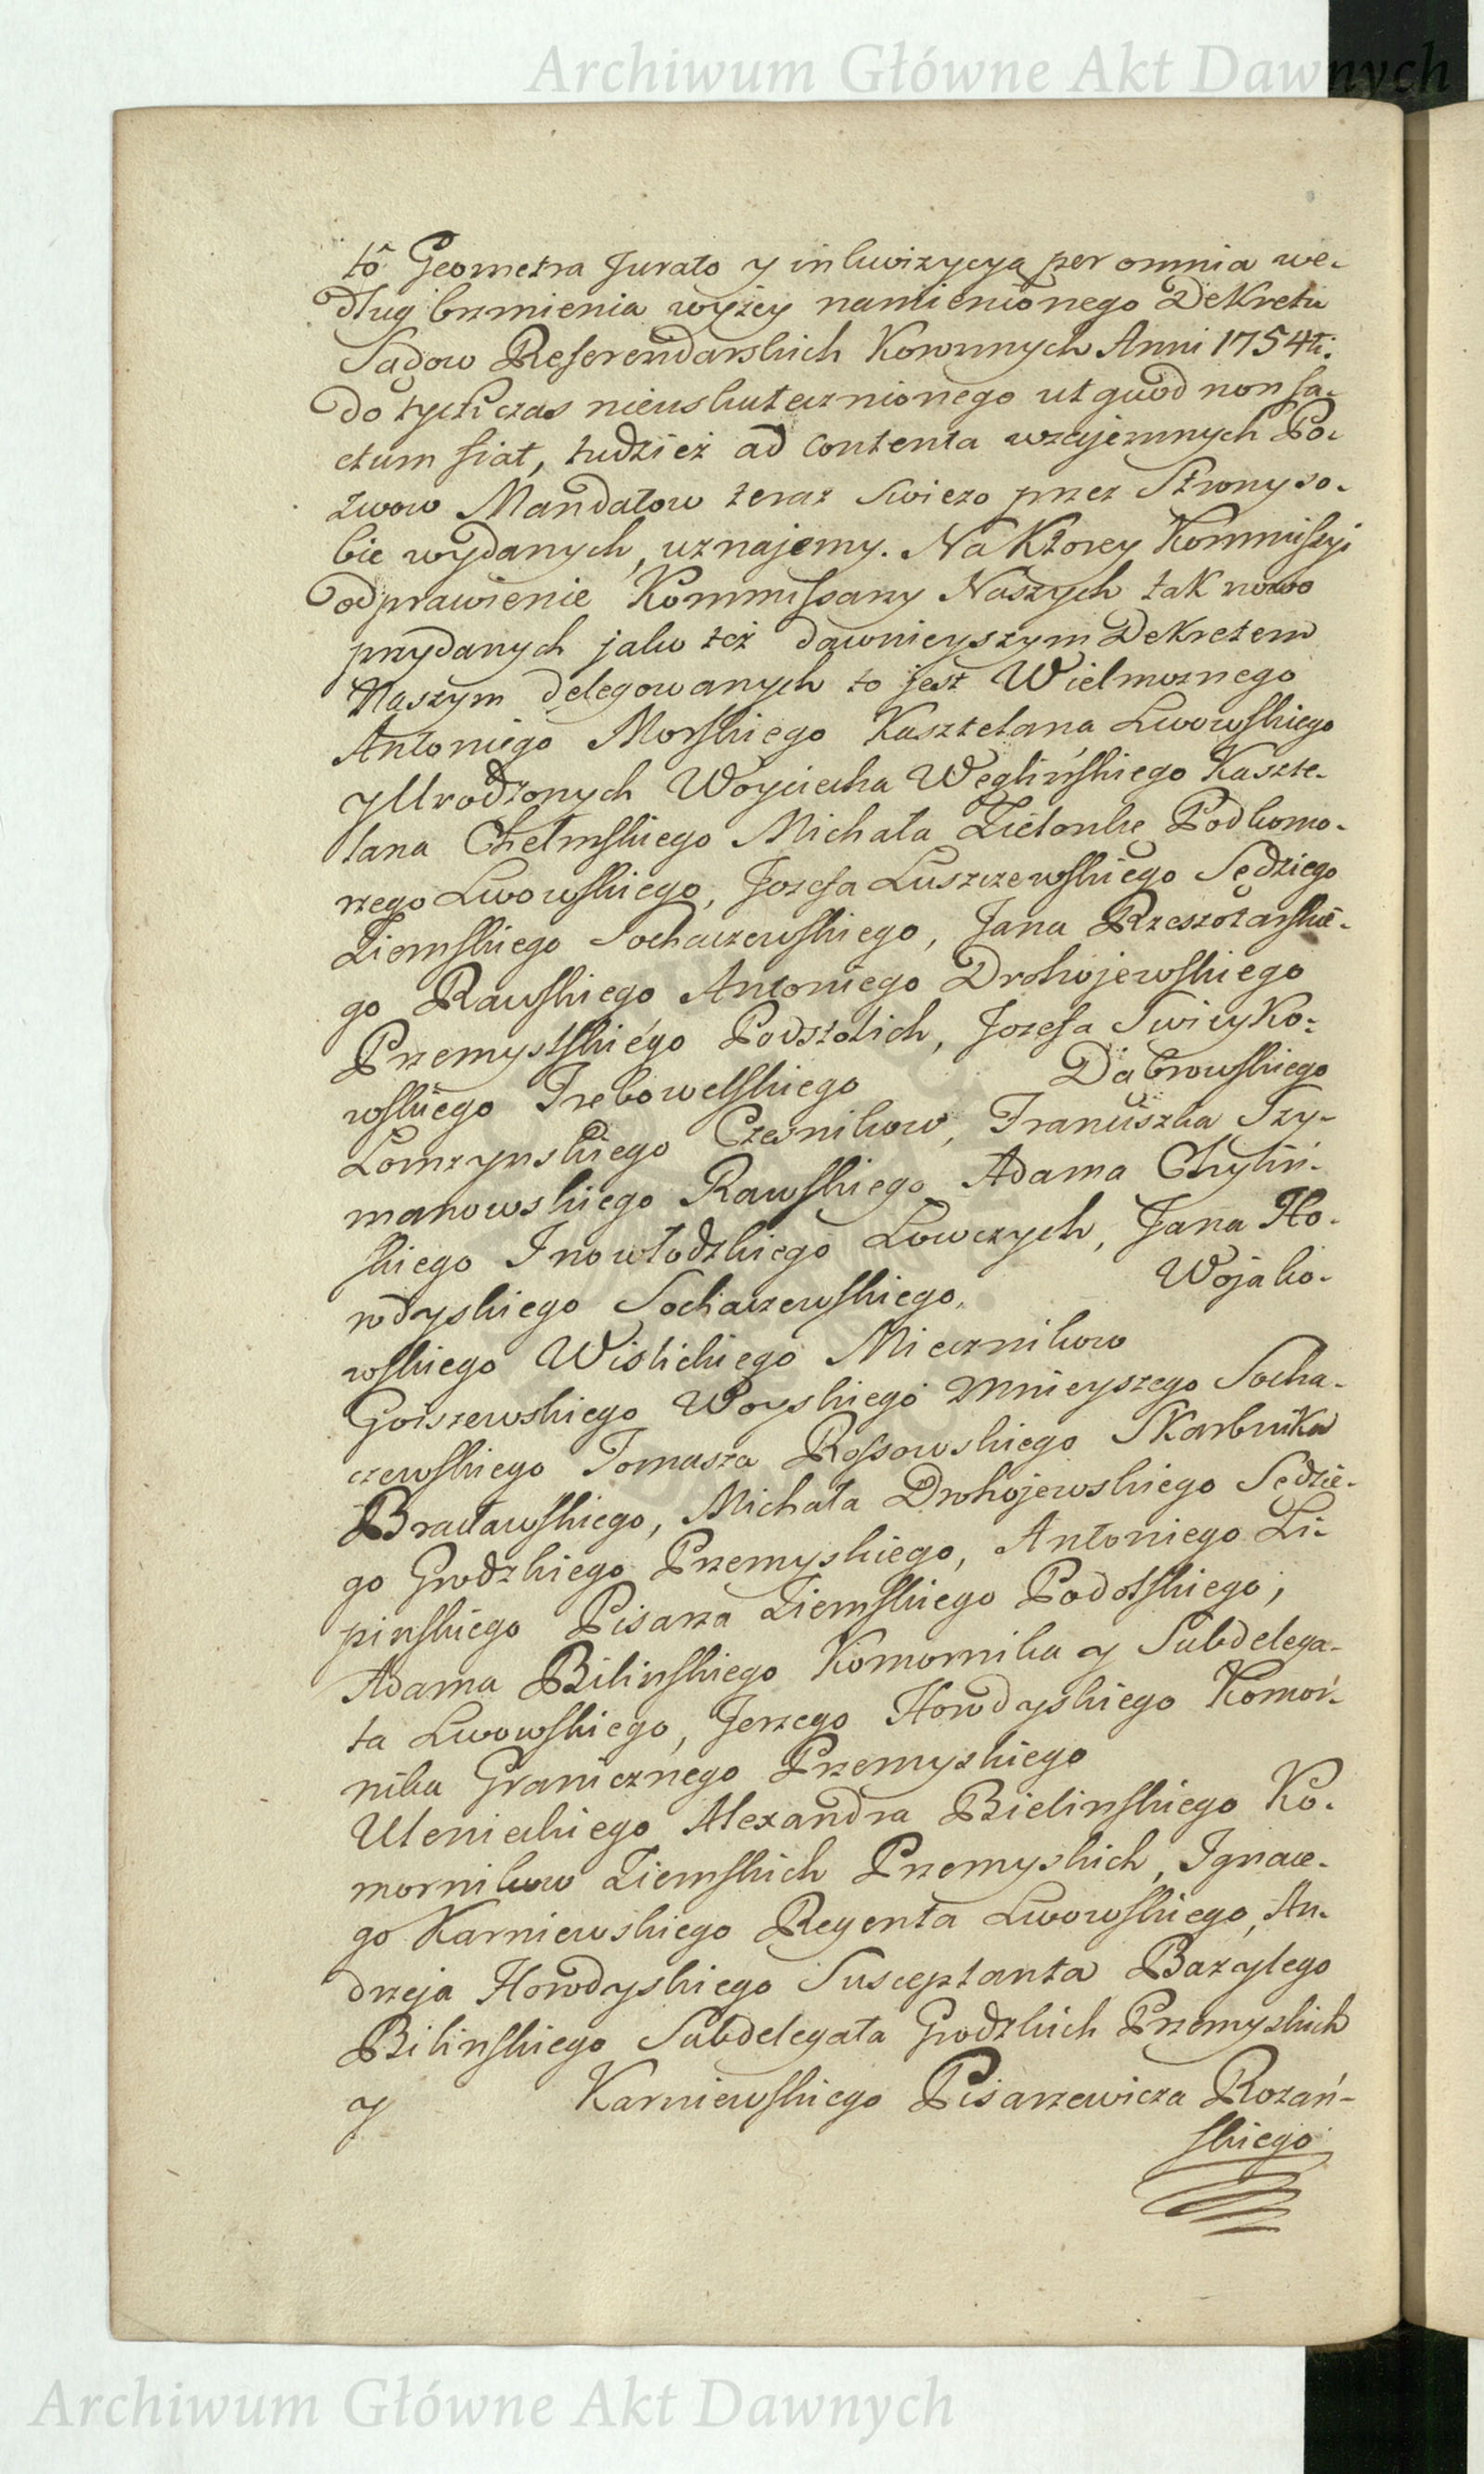 Archiwum Główne Akt Dawnych
tô Geometra Jurato y inkwizycyą per omnia we-
dług brzmienia wyżey namienionego Dekretu
Sądow Referendarskich Koronnych Anni 1754ti.
do tychczas nieuskutecznionego ut quod non fa-
ctum fiat, tudzież ad contenta wzajemnych Po-
zwow Mandatow teraz swiezo przez Strony so-
bie wydanych, uznajemy. Na Ktorey Kommissyi
odprawienie Kommissarzy Naszych tak nowo
przydanych jako też dawnieyszym Dekretem
Naszym delegowanych to jest Wielmoznego
Antoniego Morskiego Kasztelana Lwowskiego
y Urodzonych Woyciecha Węglińskiego Kaszte-
lana Chełmskiego Michała Zielonkę Podkomo-
rzego Lwowskiego, Jozefa Luszczewskiego Sędziego
Ziemskiego Sochaczewskiego, Jana Rzeszotarskie-
go Rawskiego Antoniego Drohojewskiego
Przemyslskiego Podstolich, Jozefa Swieyko-
wskiego Trębowelskiego Dąbrowskiego
Łomzynskiego Czesnikow, Franciszka Szy-
manowskiego Rawskiego Adama Chyliń-
skiego Inowłodzkiego Łowczych, Jana Ho-
rodyskiego Sochaczewskiego, Wojako-
wskiego Wislickiego Miecznikow
Gorszewskiego Woyskiego Mnieyszego Socha-
czewskiego Tomasza Rossowskiego Skarbnika
Bracławskiego, Michała Drohojewskiego Sędzie-
go Grodzkiego Przemyskiego, Antoniego Li-
pinskiego Pisarza Ziemskiego Podolskiego,
Adama Bilinskiego Komornika y Subdelega-
ta Lwowskiego, Jerzego Horodyskiego Komor-
nika Granicznego Przemyskiego
Ulenieckiego Alexandra Bielinskiego Ko-
mornikow Ziemskich Przemyskich, Ignace-
go Karniewskiego Regenta Lwowskiego, An-
drzeja Horodyskiego Susceptanta Bazylego
Bilinskiego Subdelegata Grodzkich Przemyskich
y Karniewskiego Pisarzewicza Rozań-
skiego
Archiwum Główne Akt Dawnych